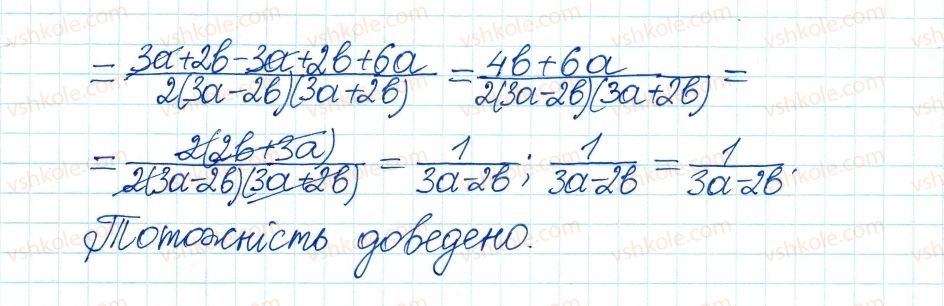 = (3a+2b-3a+2b+6a)/(2(3a-2b)(3a+2b)) = (4b+6a)/(2(3a-2b)(3a+2b)) =
= (2(2b+3a))/(2(3a-2b)(3a+2b)) = 1/(3a-2b); 1/(3a-2b) = 1/(3a-2b).
Тотожність доведено.